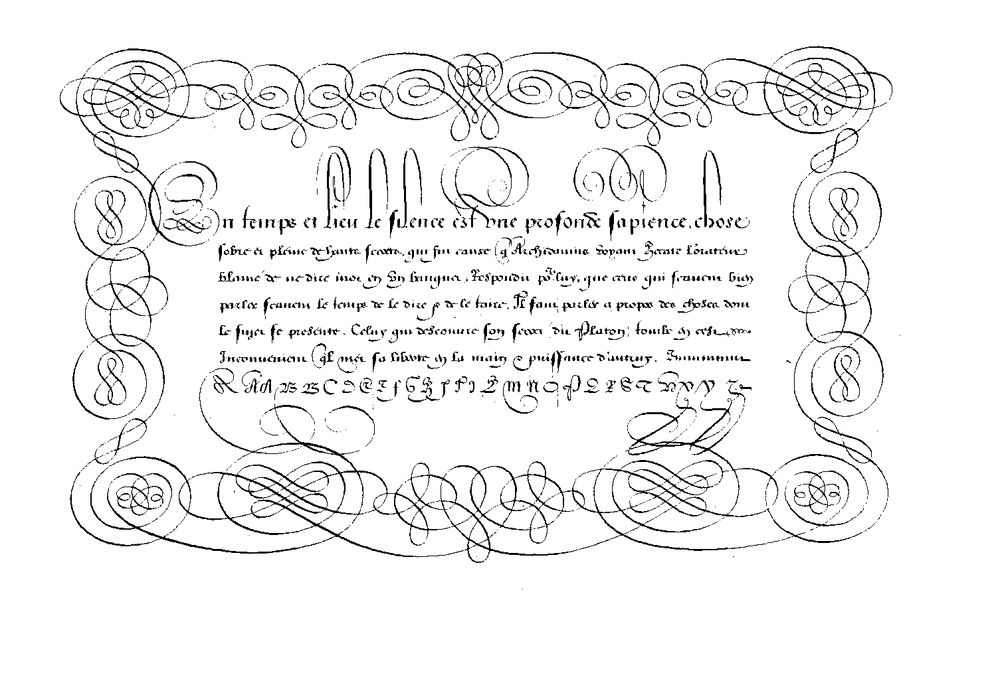 En temps et lieu le silence est vne profonde sapience, chose
sobre et pleine de haute secrete, qui fut cause q̃ Archidamius voyant Hecate l'orateur
blamé de ne dire mot en vn banquet, Respondit po.r luy, que ceux qui scauent bien
parler scauent le temps de le dire & de le taire. Il faut parler a propos des choses dont
le sujet se presente. Celuy qui descouvre son secret dit Platon, tombe en cest
Inconuenient q̃l met sa liberte en la main & puissance d'autruy.
A A A B B C D E E F G H I L M N O P Q R S T V X Y Z